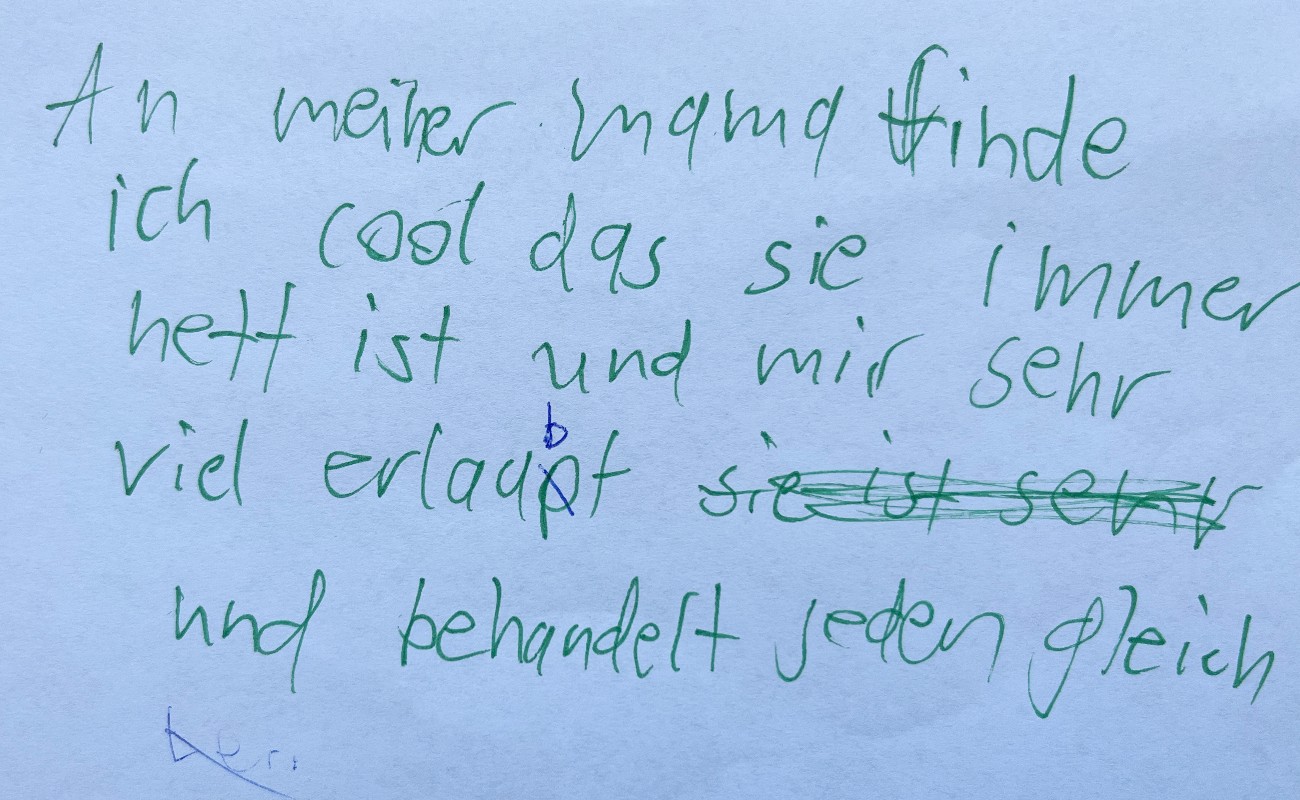 An meiner mama finde
ich cool das sie immer
nett ist und mir sehr
viel erlaubt sie ist sehr
und behandelt jeden gleich